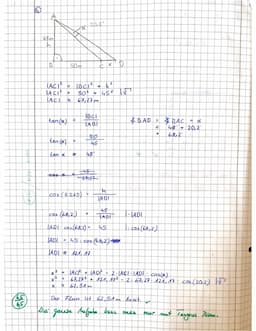 A
20,2°
45m
h
B
50m
C
x
D
|AC|² = |BC|² + h²
|AC|² = 50² + 45² |√
|AC| ≈ 67,27m
tan(α) = |BC| / |AB|
tan(α) = 50 / 45
tan α = 48°
∡ BAD = ∡ BAC + α
= 48 + 20,2
= 68,2°
cos(68,2) = h / |AD|
cos(68,2) = 45 / |AD| | · |AD|
|AD| · cos(68,2) = 45 | : cos(68,2)
|AD| = 45 : cos(68,2)
|AD| ≈ 121,17
x² = |AC|² + |AD|² - 2 · |AC| · |AD| · cos(α)
x² = 67,27² + 121,17² - 2 · 67,27 · 121,17 · cos(20,2) |√
x ≈ 62,51m
Der Fluss ist 62,51m breit. ✓
Die ganze Aufgabe